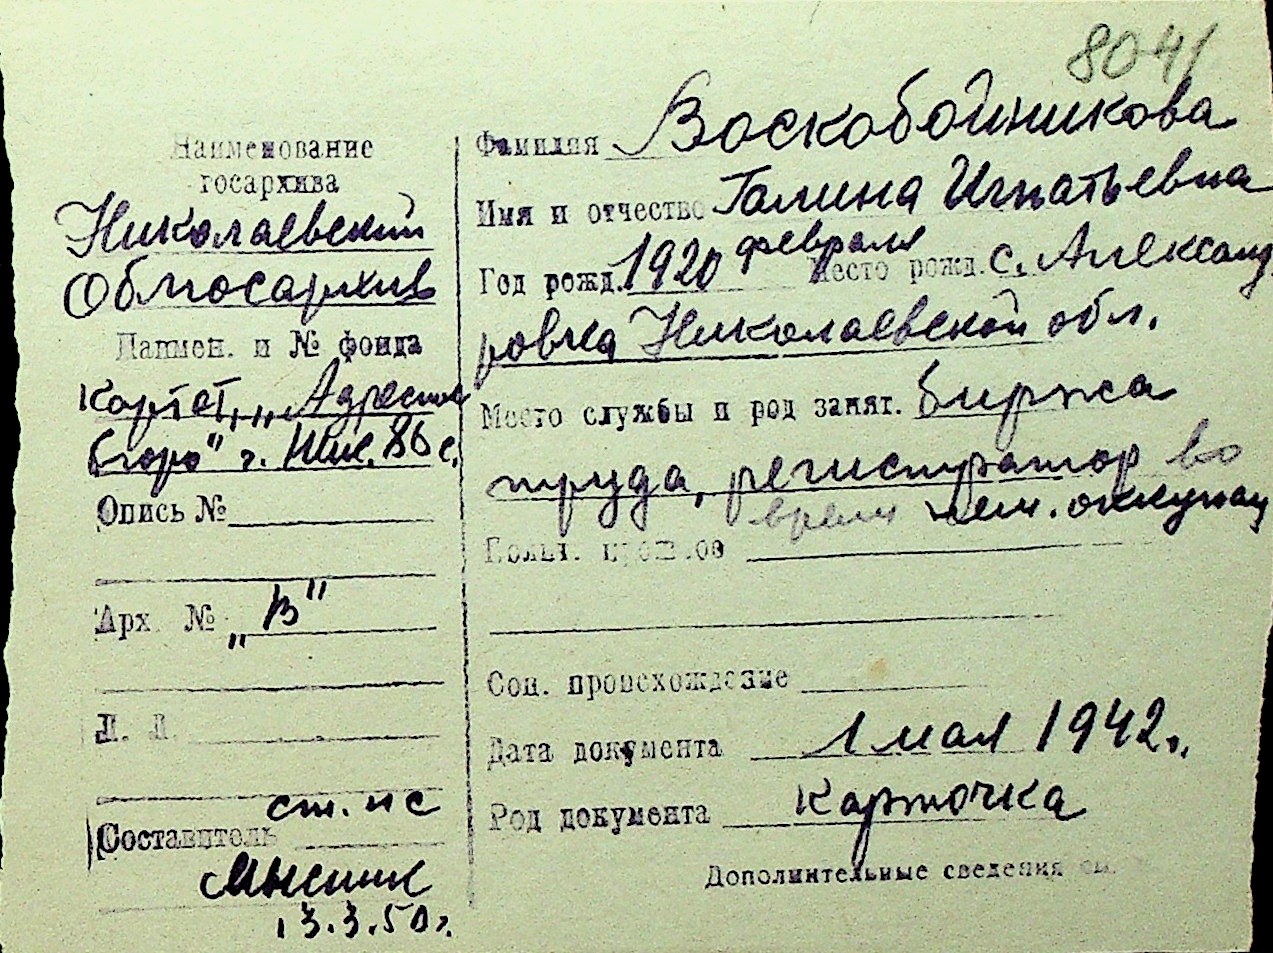 8041
Наименование
госархива
Николаевский
Облгосархив
Наимен. и № фонда
Картот. „Адресное
бюро" г. Ник. 86 с.
Опись №
Арх № „В"
Л. Л.
ст. н с
Составитель
13.3.50 г.
Фамилия Воскобойникова
Имя и отчество Галина Игнатьевна
Год рожд. 1920 февраля Место рожд. с. Александ
ровка Николаевской обл.
Место службы и род занят. Биржа
труда, регистратор во
время нем. оккупац
Полит. прошлое
Соц. происхождение
Дата документа 1 мая 1942 г.
Род документа карточка
Дополнительные сведения